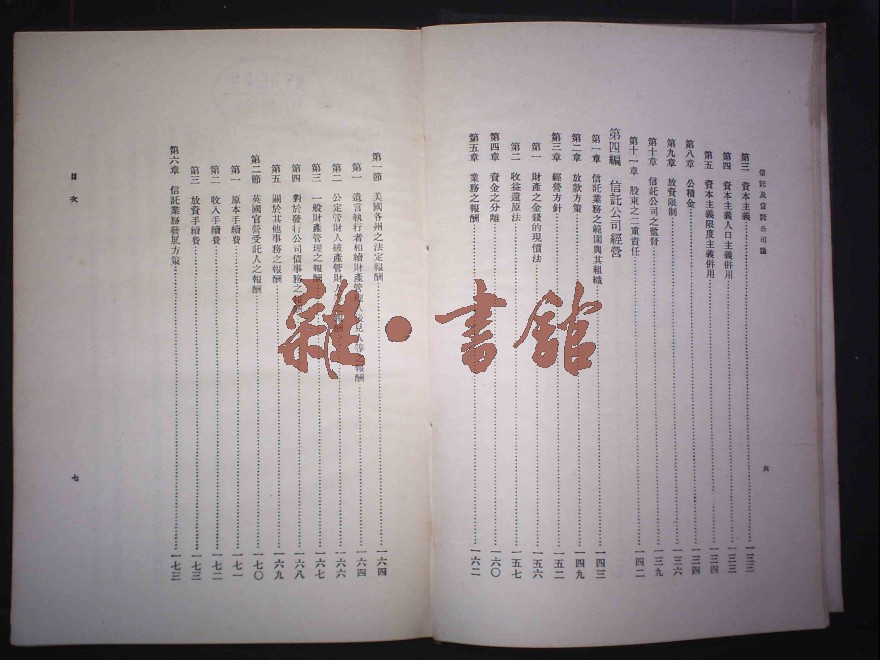 信託及信託公司論
第三 資本主義……一三三
第四 資本主義人口主義併用……一三三
第五 資本主義限度主義併用……一三四
第八章 公積金……一三四
第九章 放資限制……一三六
第十章 信託公司之監督……一三九
第十一章 股東之二重責任……一四二
第四編 信託公司經營
第一章 信託業務之範圍與其組織……一四三
第二章 放款方策……一四九
第三章 經營方針……一五二
第一 財產之金錢的現價法……一五六
第二 收益還原法……一五七
第四章 資金之分離……一六〇
第五章 業務之報酬……一六二
六
第一節 美國各州之法定報酬……一六四
第一 遺言執行者相續財產管理人後見人等之報酬……一六四
第二 公定管財人破產管財之報酬……一六六
第三 一般財產管理之報酬……一六七
第四 對於發行公司債事務之報……一六八
第五 關於其他事務之報酬……一六九
第二節 英國官營受託人之報酬……一七〇
第一 原本手續費……一七一
第二 收入手續費……一七二
第三 放資手續費……一七三
第六章 信託業務發展方策……一七三
目次
七
雜·書館